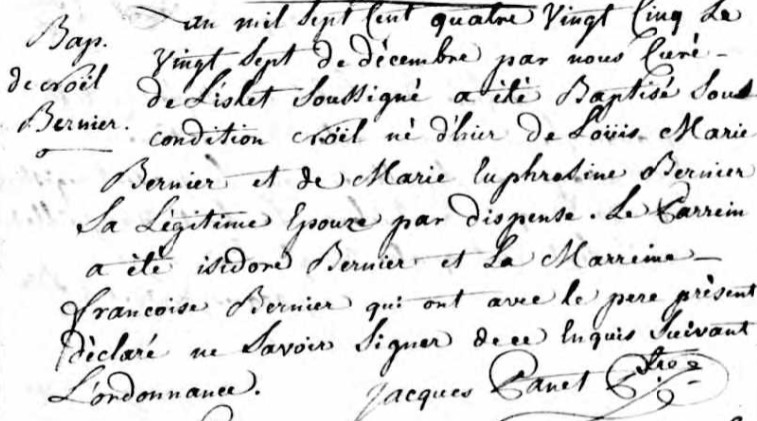 Bap.
de Nöël
Bernier.
L'an mil Sept Cent quatre Vingt Cinq Le
Vingt Sept de décembre par nous Curé
de Lislet Soussigné a été Baptisé Sous
condition Nöël né d'hier de Loüis Marie
Bernier et de Marie Euphrosine Bernier
Sa Légitime Epouze par dispense. Le Parrein
a été isidore Bernier et La Marreine
francoise Bernier qui ont avec le pere présent
déclaré ne Savoir Signer de ce Enquis Suivant
L'ordonnance. Jacques Panet Ptre